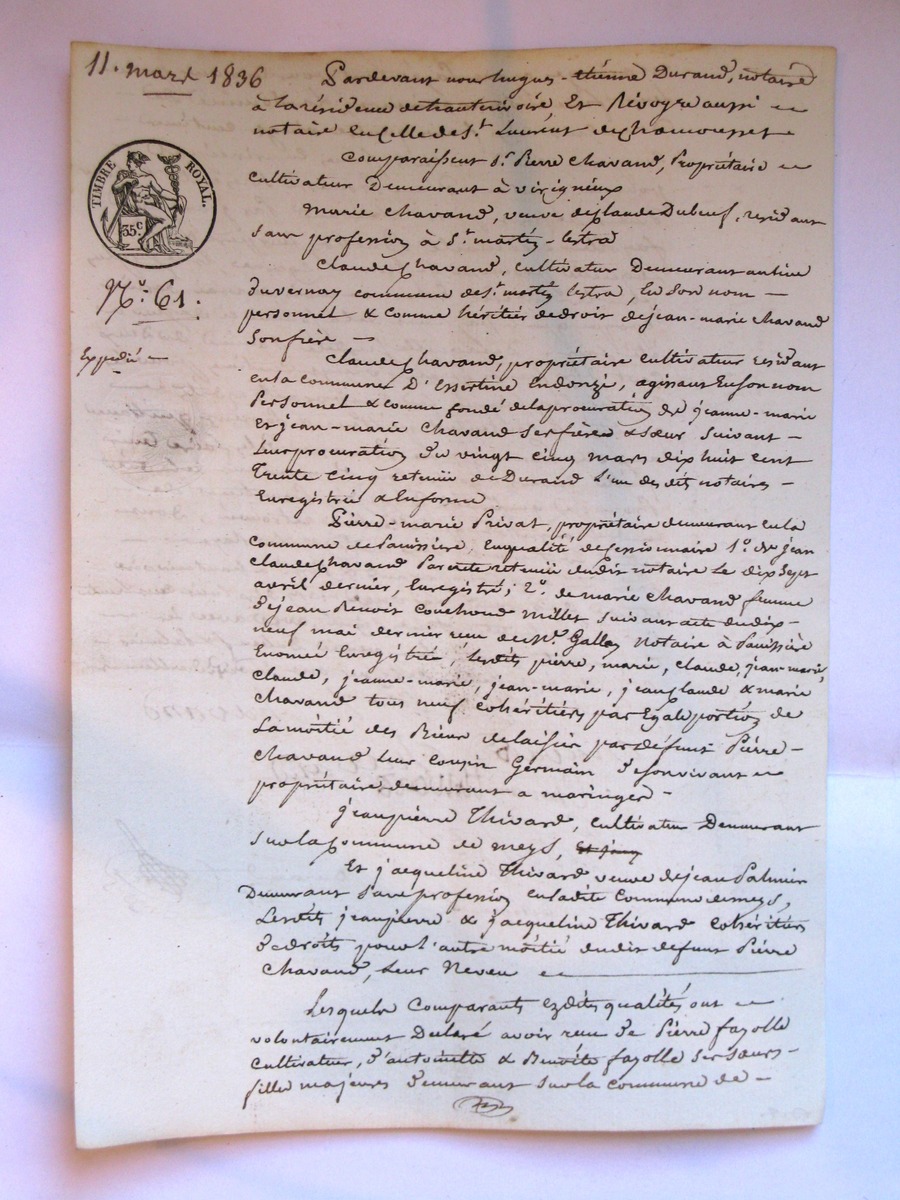 11. mars 1836
Pardevant nous hugues-étienne Durand, notaire
à la résidence de hauterivoire, Et Révoyre aussi
notaire en celle de St. Laurent de Chamousset
TIMBRE ROYAL.
35c
Comparaissent Sr. Pierre Chavand, Propriétaire
cultivateur Demeurant à virigneux
Marie Chavand, veuve de Claude Dubeuf, residant
sans profession à St. martin-lestra
Claude Chavand, cultivateur Demeurant au lieu
Duvernay commune de St. martin lestra, En Son nom
personnel & comme héritier de droit de jean-marie Chavand
Son frère
No. 61.
Expédié
Claude Chavand, propriétaire cultivateur residant
en la commune D'Essertine Endonzi, agissant En son nom
Personnel & comme fondé de la procuration de jeanne-marie
Et jean-marie Chavand Ses frère & sœur suivant
Leur procuration Du vingt cinq mars dix huit cent
Trente cinq retenue de Durand L'un des dits notaires
Enregistrée & En forme
Pierre-marie Privat, propriétaire demeurant en la
Commune de Panissière, En qualité de Cessionnaire 1o. de jean
Claude Chavand Par acte retenu dudit notaire Le dix Sept
avril dernier, Enregistré; 2o. de marie Chavand femme
De jean Benoit Couchoud millet suivant acte du dix
neuf mai dernier reçu de Me. Gallon Notaire à Panissière
Enomée Enregistré, Lesdits pierre, marie, claude, jean-marie,
Claude, jeanne-marie, jean-marie, jean Claude & marie
Chavand tous neuf Cohéritiers par Egale portion de
La moitié des Biens delaissés par Défunt Pierre
Chavand Leur Cousin Germain De son vivant
propriétaire demeurant a maringes
jean pierre Thivard, cultivateur Demeurant
sur la Commune de meys,
Et jacqueline Thivard veuve de jean Palmier
Demeurant Sans profession en ladite Commune de meys,
Lesdits jean pierre & jacqueline Thivard Cohéritiers
De droits pour L'autre moitié dudit défunt Pierre
Chavand, Leur Neveu
Lesquels Comparants Ezdites qualités ont
volontairement Déclaré avoir reçu De Pierre fayolle
Cultivateur, D'antoinette & Benoite fayolle Ses sœurs
filles majeures Demeurant Sur la commune de